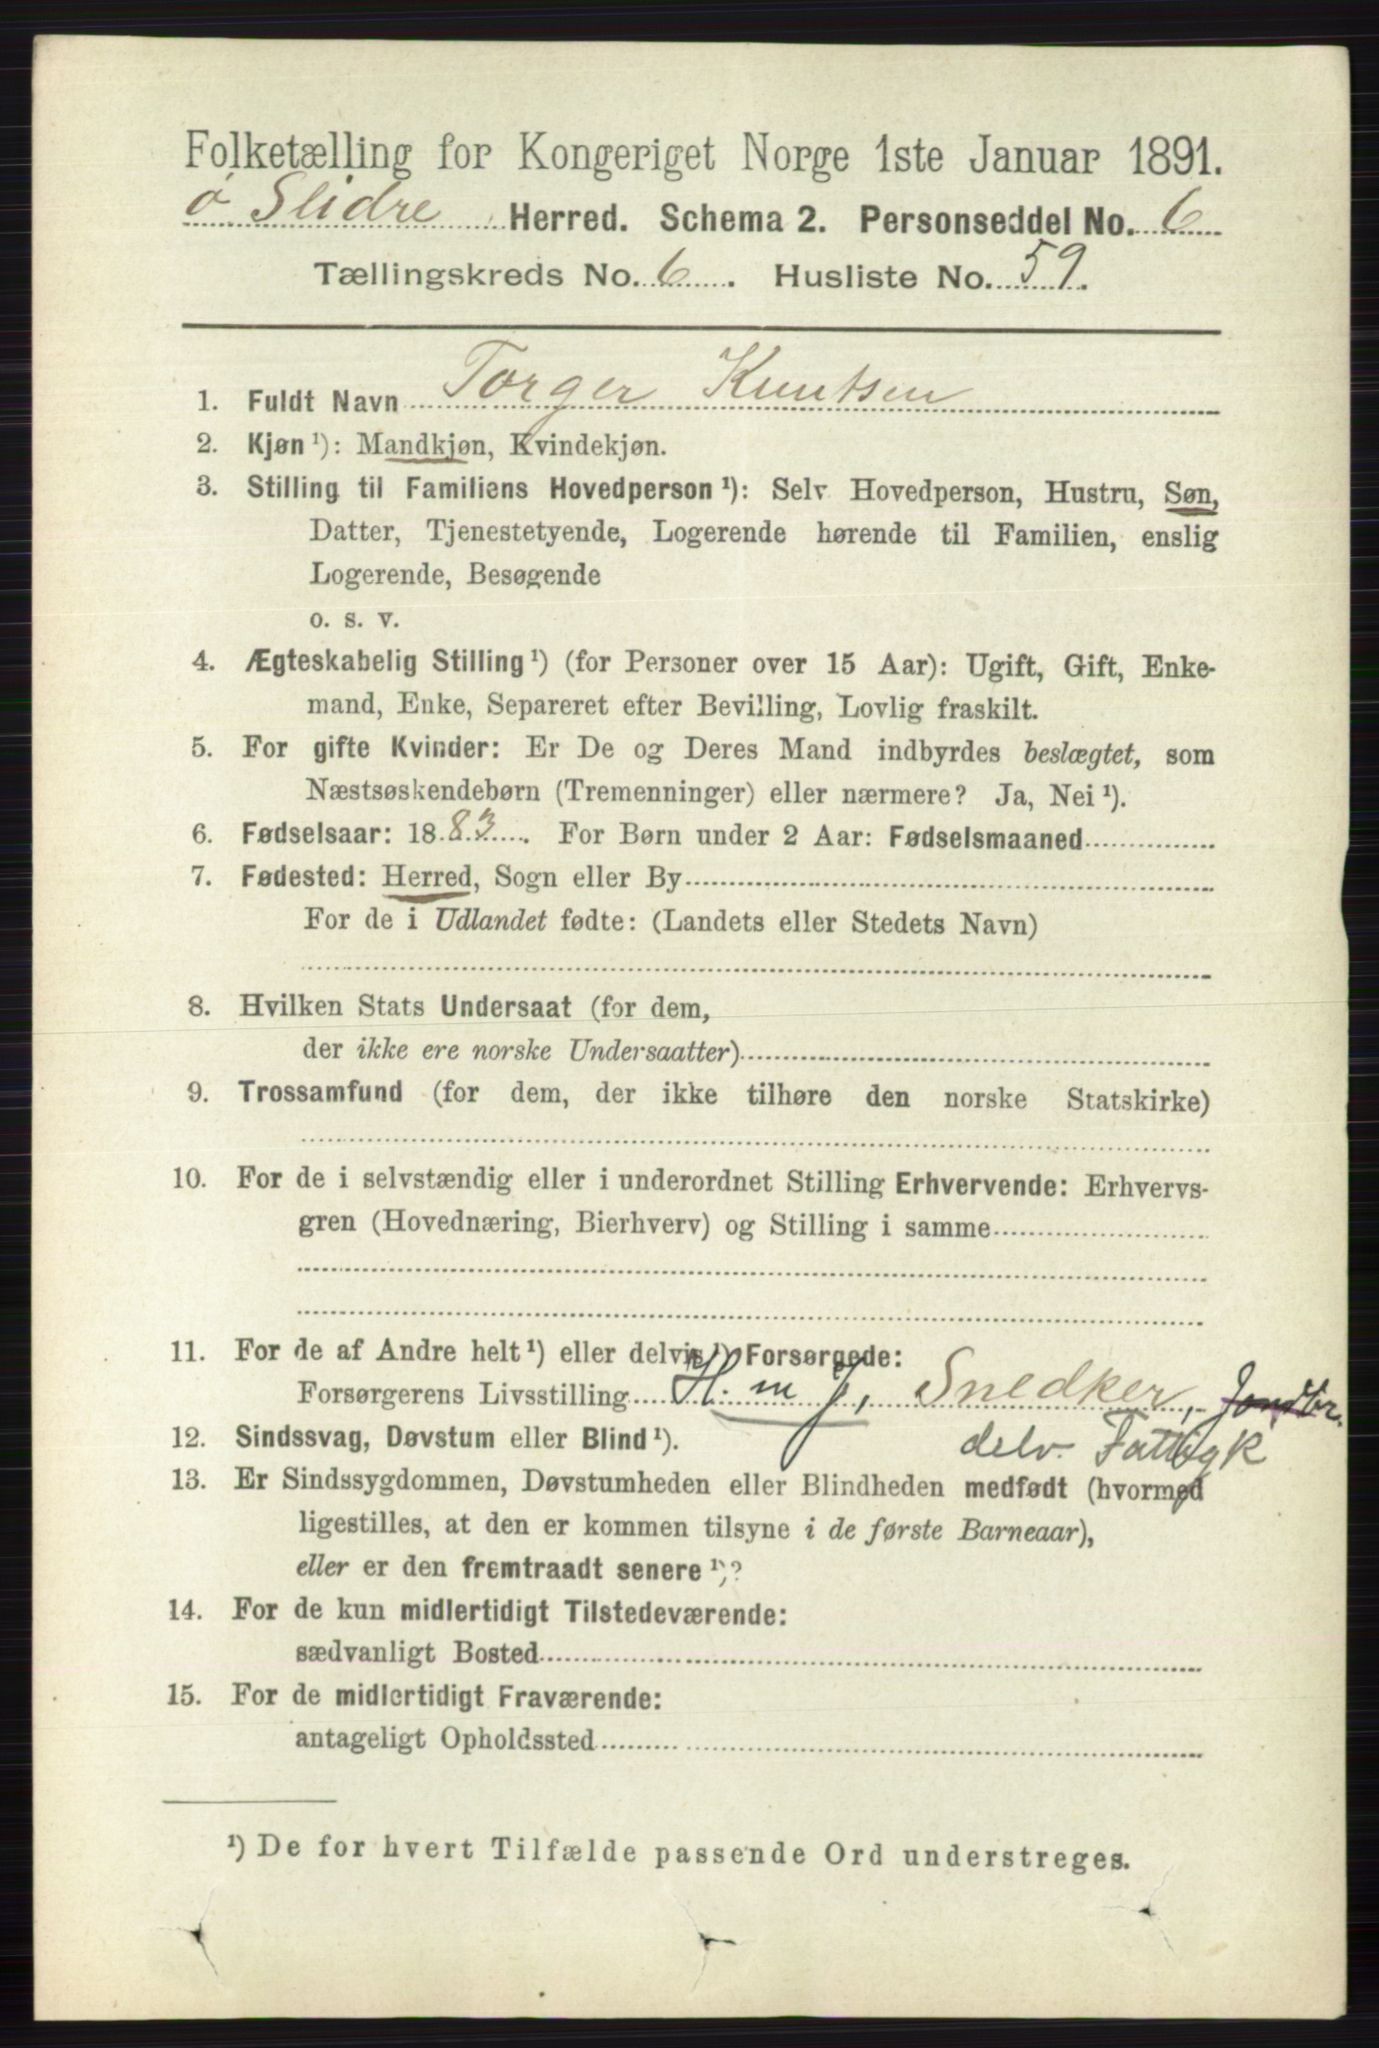 Folketælling for Kongeriget Norge 1ste Januar 1891.
Ø Slidre Herred. Schema 2. Personseddel No. 6
Tællingskreds No. 6. Husliste No. 59.
1. Fuldt Navn Torger Knutsen
2. Kjøn ¹): Mandkjøn, Kvindekjøn.
3. Stilling til Familiens Hovedperson ¹): Selv Hovedperson, Hustru, Søn,
Datter, Tjenestetyende, Logerende hørende til Familien, enslig
Logerende, Besøgende
o. s. v.
4. Ægteskabelig Stilling ¹) (for Personer over 15 Aar): Ugift, Gift, Enke-
mand, Enke, Separeret efter Bevilling, Lovlig fraskilt.
5. For gifte Kvinder: Er De og Deres Mand indbyrdes beslægtet, som
Næstsøskendebørn (Tremenninger) eller nærmere? Ja, Nei ¹).
6. Fødselsaar: 1883. For Børn under 2 Aar: Fødselsmaaned
7. Fødested: Herred, Sogn eller By
For de i Udlandet fødte: (Landets eller Stedets Navn)
8. Hvilken Stats Undersaat (for dem,
der ikke ere norske Undersaatter)
9. Trossamfund (for dem, der ikke tilhøre den norske Statskirke)
10. For de i selvstændig eller i underordnet Stilling Erhvervende: Erhvervs-
gren (Hovednæring, Bierhverv) og Stilling i samme
11. For de af Andre helt ¹) eller delvis ¹) Forsørgede:
Forsørgerens Livsstilling H. m J, Snedker,
12. Sindssvag, Døvstum eller Blind ¹). delv. Fattigk
13. Er Sindssygdommen, Døvstumheden eller Blindheden medfødt (hvormed
ligestilles, at den er kommen tilsyne i de første Barneaar),
eller er den fremtraadt senere ¹)?
14. For de kun midlertidigt Tilstedeværende:
sædvanligt Bosted
15. For de midlertidigt Fraværende:
antageligt Opholdssted
¹) De for hvert Tilfælde passende Ord understreges.